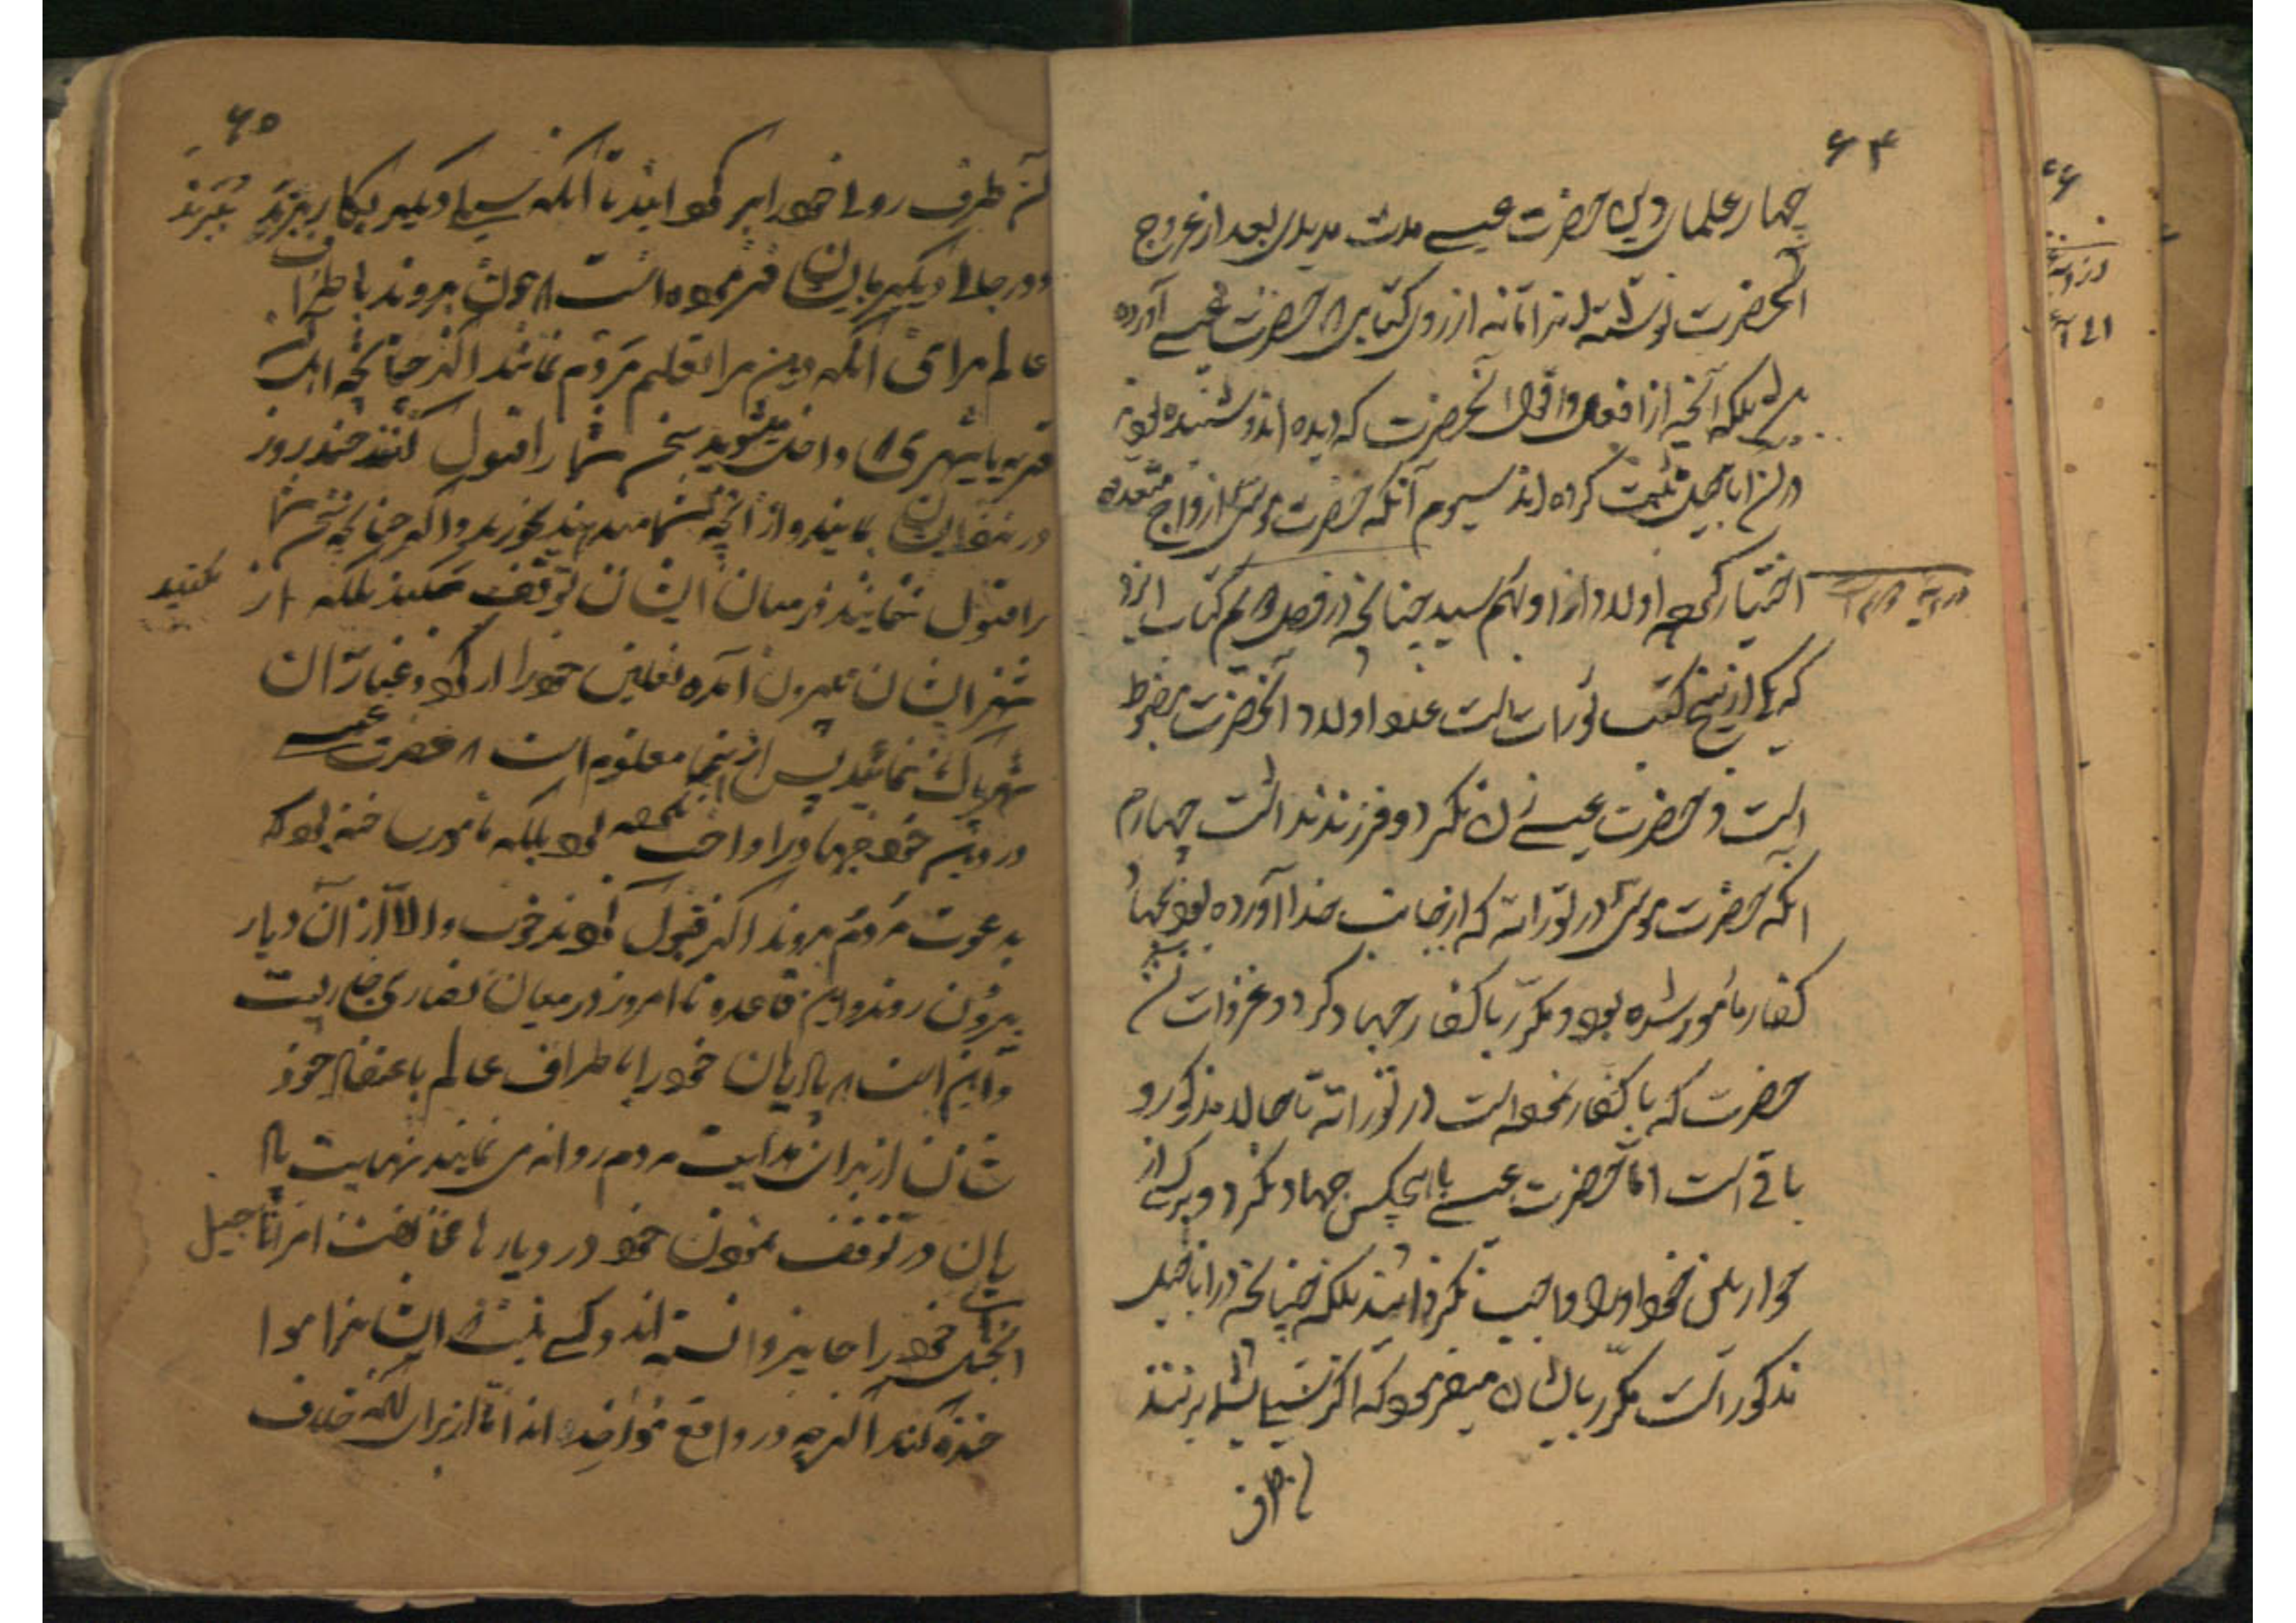 ۶۴
چهار علمای دین حضرت عیسی مدت مدیدی بعد از عروج
آنحضرت نوشته اند اما نه از روی کتابی که حضرت عیسی آورده
بلکه آنچه از افعال و اقوال آنحضرت که دیده اند و شنیده بودند
در آن اناجیل ثبت کرده اند سیوم آنکه حضرت موسی ازواج متعدده
اختیار کرده اولاد از او بهم رسید چنانچه در فصل کتاب
که یکی از پنج کتب تورات است عدد اولاد آنحضرت مضبوط
است و حضرت عیسی زن نکرد و فرزند نداشت چهارم
آنکه حضرت موسی در توراته که از جانب خدا آورده بود بجهاد
کفار مأمور شده بود و مکرر با کفار جهاد کرد و غزوات آن
حضرت که با کفار نموده است در توراته تا حال مذکور و
باقی است اما حضرت عیسی با هیچکس جهاد نکرد و بر کسی از
حواریین خود او را واجب نکردانید بلکه چنانچه در اناجیل
مذکور است مکرر بایشان میفرمود که اگر سیلی بشما بزنند
آن طرف
۶۵
آن طرف روی خود را بر گردانید تا آنکه سیلی دیگر بکار برند بزنند
و در جای دیگر بایشان فرموده است که چون بروند باطراف
عالم برای آنکه دین مرا تعلیم مردم نمائید اگر چنانچه اهل
قریه یا شهری که داخل میشوید سخن شما را قبول کنند چند روز
در شهر ایشان بمانید و از آنچه بشما میدهند بخورید و اگر چنانچه سخن شما
را قبول ننمایند در میان ایشان توقف مکنید بلکه از مکنید
شهر ایشان بیرون آمده نعلین خود را از گرد و غبار آن
شهر پاک نمائید پس از اینجا معلوم است که حضرت عیسی
در دین خود جهاد را واجب نکرده بود بلکه مأمور ساخته بود که
بدعوت مردم بروند اگر قبول کردند خوب والا از آن دیار
بیرون روند و این قاعده تا امروز در میان نصاری جاریست
و این است که پادریان خود را باطراف عالم باعتقاد خود
شان از برای هدایت مردم روانه می نمایند نهایت پادر
یان در توقف نمودن خود در دیارها مخالفت امر اناجیل
انجیل خود را جایز دانسته اند و کسی نیست که ایشان را مواخذه
کند اگر چه در واقع مواخذه اند اما از برای آنکه خلاف